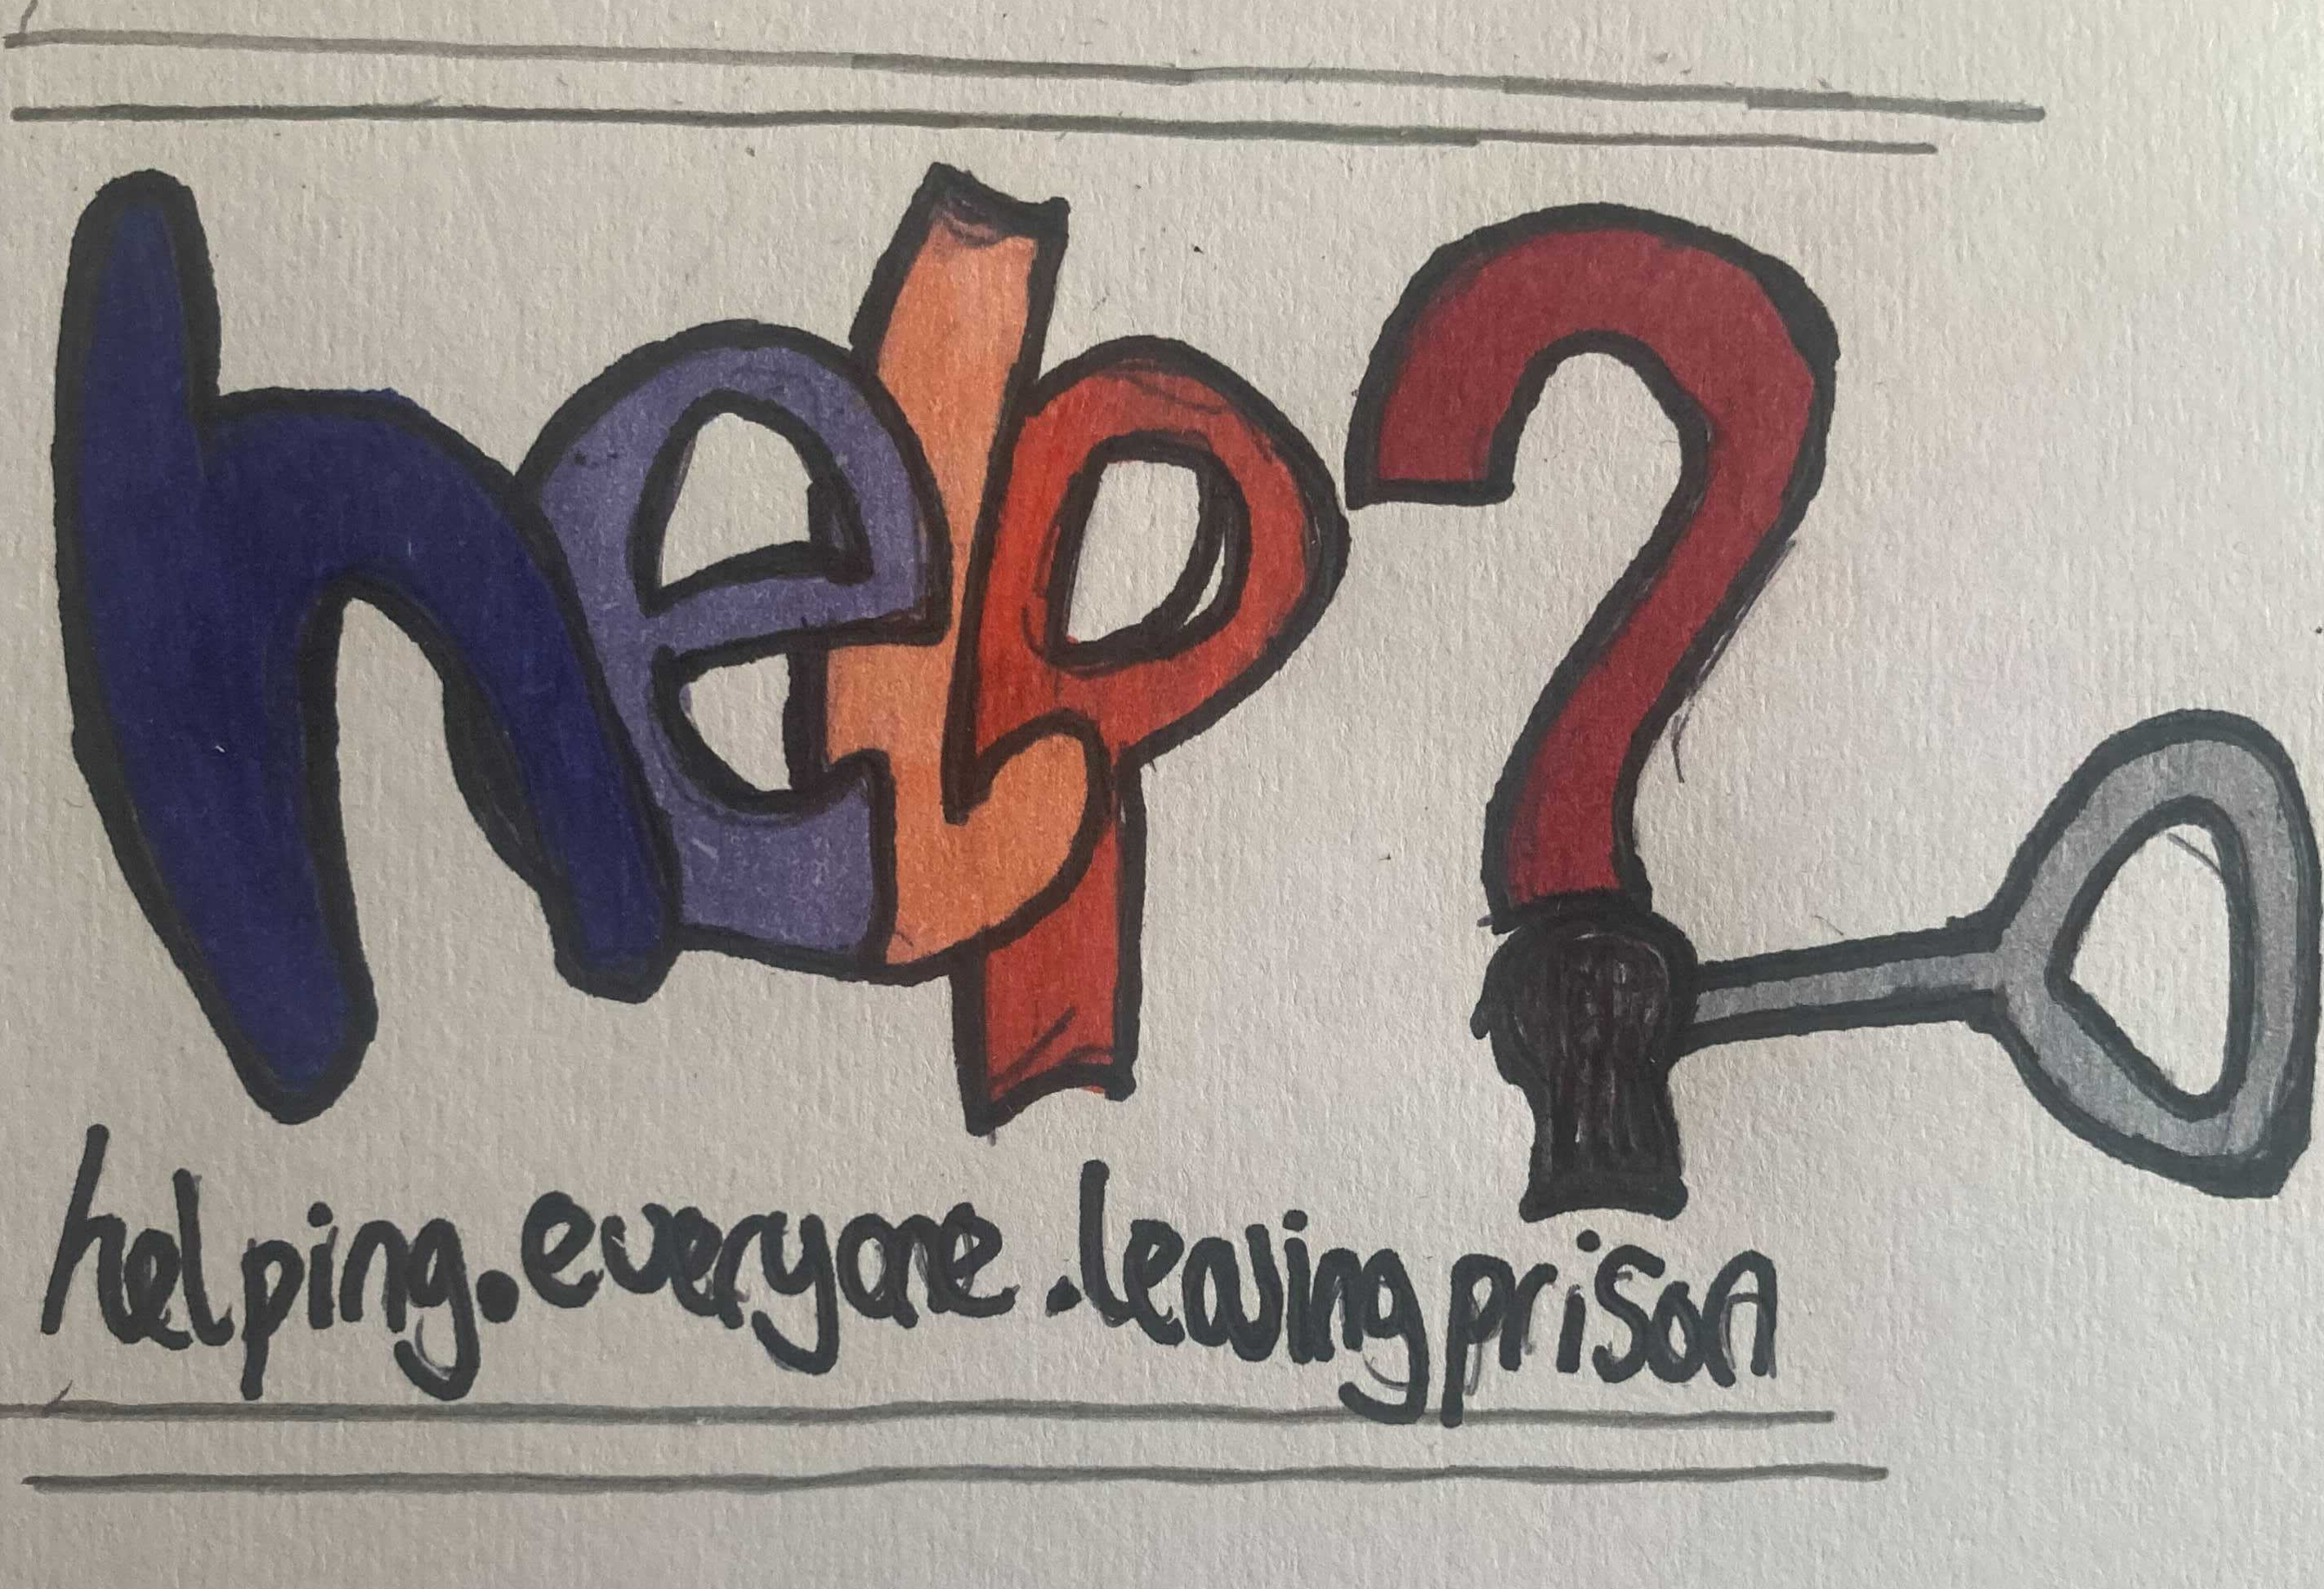 help?
helping.everyone.leaving prison